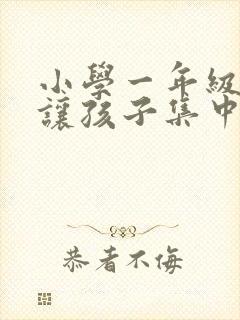 小學一年級
讓孩子集中
恭者不侮